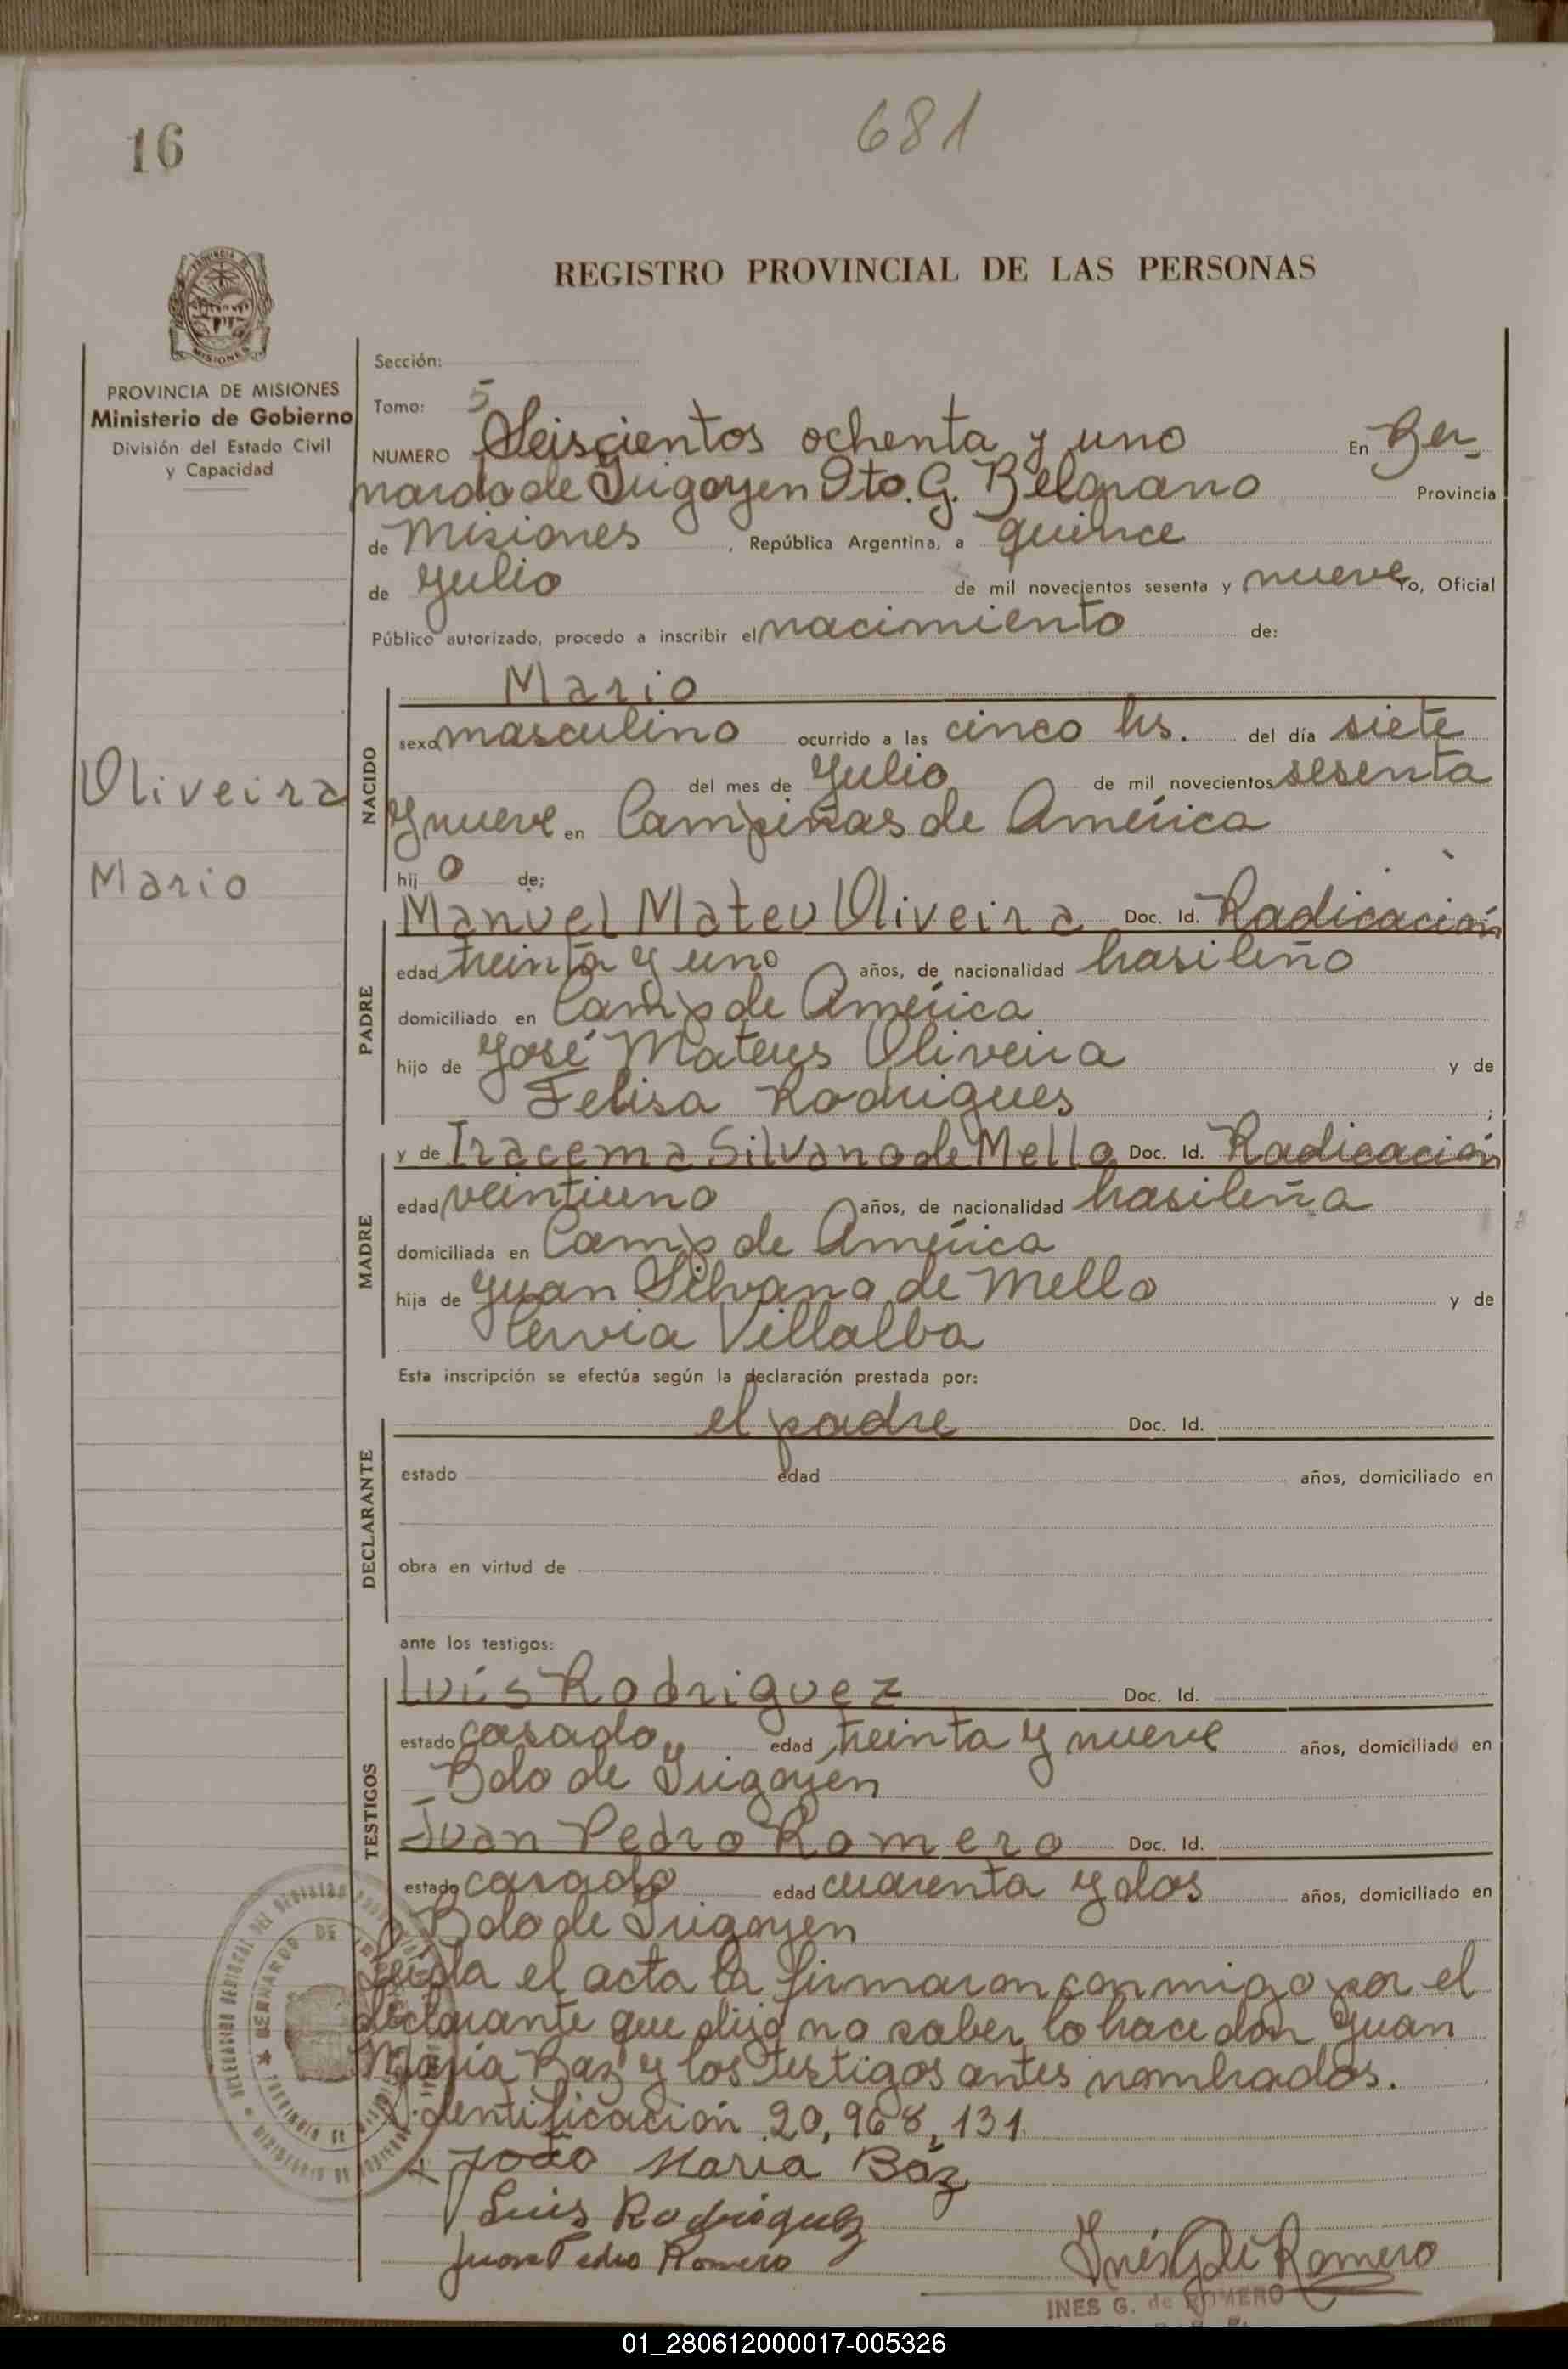 16
681
REGISTRO PROVINCIAL DE LAS PERSONAS
PROVINCIA DE MISIONES
Ministerio de Gobierno
División del Estado Civil
y Capacidad
Sección:
Tomo: 5
NUMERO Seiscientos ochenta y uno En Ber-
nardo de Irigoyen Dto. G. Belgrano Provincia
de Misiones, República Argentina, a quince
de Julio de mil novecientos sesenta y nueve Yo, Oficial
Público autorizado, procedo a inscribir el nacimiento de:
Mario
NACIDO
sexo masculino ocurrido a las cinco hs. del día siete
del mes de Julio de mil novecientos sesenta
y nueve en Campiñas de América
hijo de;
Oliveira
Mario
PADRE
Manuel Mateu Oliveira Doc. Id. Radicación
edad treinta y uno años, de nacionalidad brasileño
domiciliado en Camp de América
hijo de José Mateus Oliveira y de
Felisa Rodrigues;
MADRE
y de Iracema Silvano de Mello Doc. Id. Radicación
edad veintiuno años, de nacionalidad brasileña
domiciliada en Camp de América
hija de Juan Silvano de Mello y de
Villalba
Esta inscripción se efectúa según la declaración prestada por:
DECLARANTE
el padre Doc. Id.
estado edad años, domiciliado en
obra en virtud de
ante los testigos:
TESTIGOS
Luís Rodriguez Doc. Id.
estado casado edad treinta y nueve años, domiciliado en
Bdo de Irigoyen
Juan Pedro Romero Doc. Id.
estado casado edad cuarenta y dos años, domiciliado en
Bdo de Irigoyen
Leída el acta la firmaron conmigo por el
declarante que dijo no saber lo hace don Juan
María Baz y los testigos antes nombrados.
Identificación 20,968,131
João Maria Báz
Luis Rodriguez
Juan Pedro Romero
Inés G de Romero
INES G. de ROMERO
01_280612000017-005326